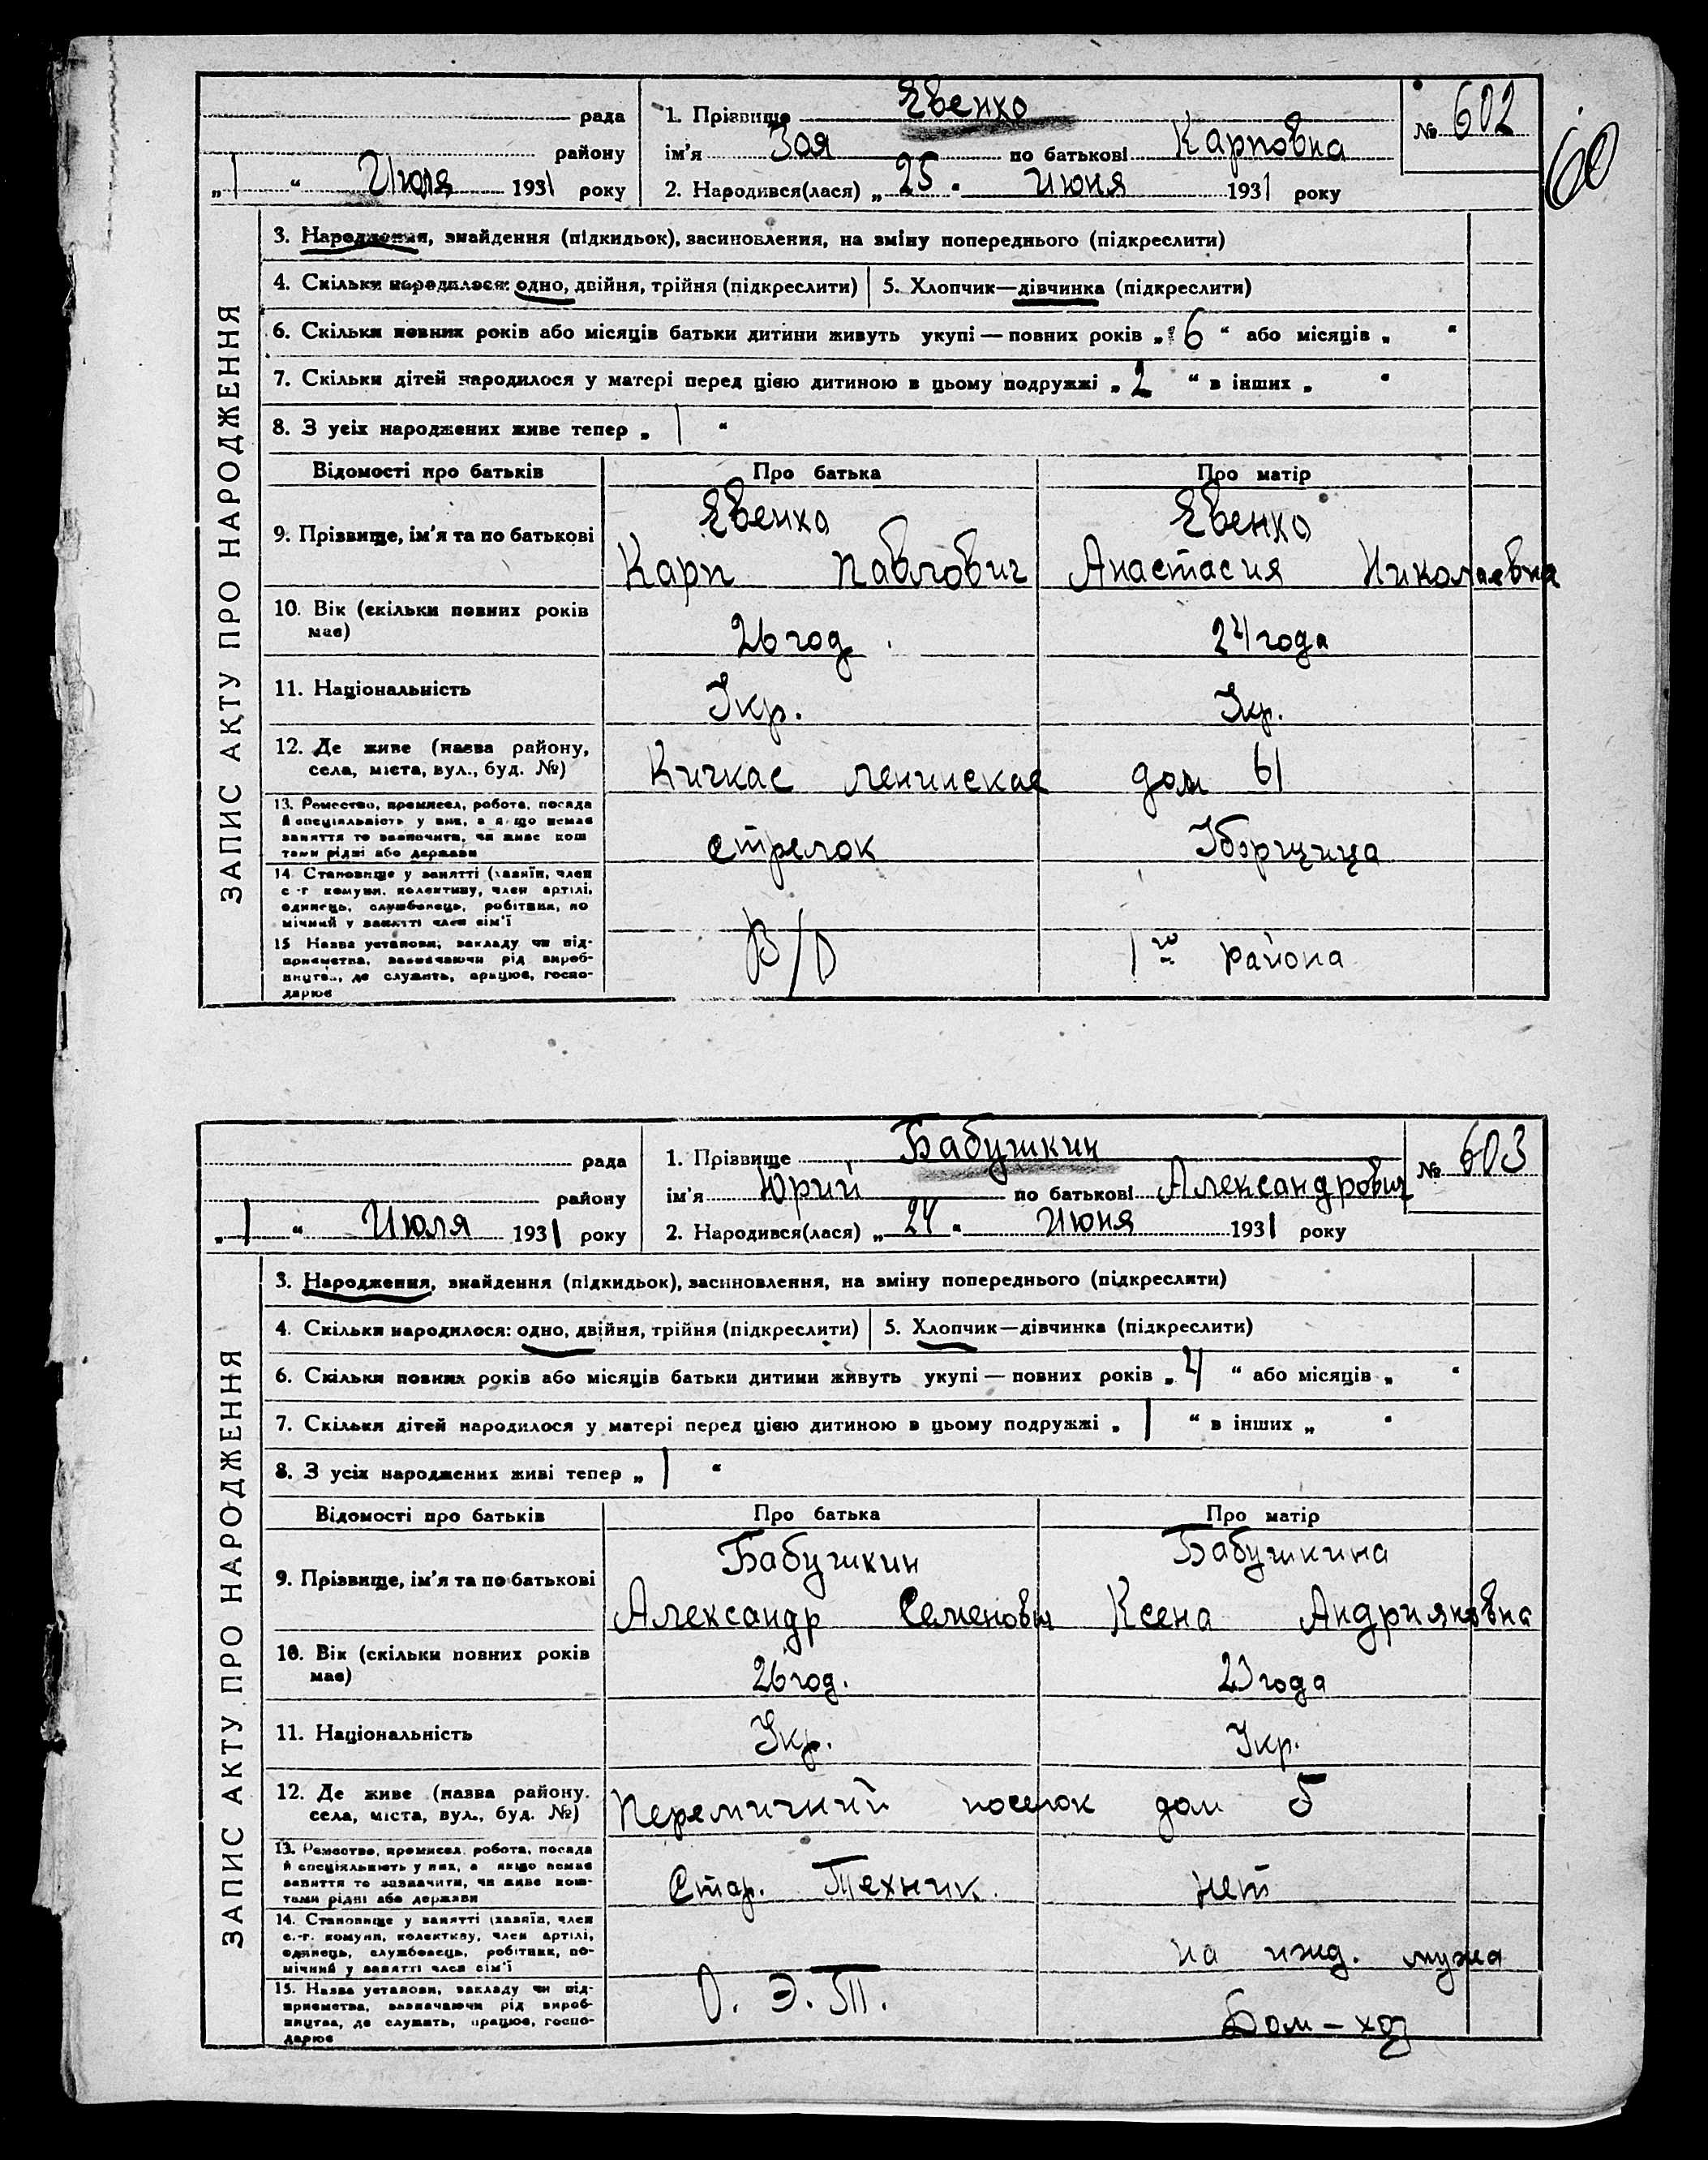 рада
району
„1“ Июля 1931 року
1. Прізвище Евенко
ім'я Зоя по батькові Карповна
2. Народився(лася) „25“ июня 1931 року
№ 602
60
ЗАПИС АКТУ ПРО НАРОДЖЕННЯ
3. Народження, знайдення (підкидьок), засиновлення, на зміну попереднього (підкреслити)
4. Скільки народилося: одно, двійня, трійня (підкреслити) 5. Хлопчик—дівчинка (підкреслити)
6. Скільки повних років або місяців батьки дитини живуть укупі — повних років „6“ або місяців „ “
7. Скільки дітей народилося у матері перед цією дитиною в цьому подружжі „2“ в інших „ “
8. З усіх народжених живе тепер „1“
Відомості про батьків Про батька Про матір
9. Прізвище, ім'я та по батькові
Евенко Евенко
Карп Павлович Анастасия Николаевна
10. Вік (скільки повних років має) 26 год. 24 года
11. Національність Укр. Укр.
12. Де живе (назва району, села, міста, вул., буд. №) Кичкас Ленинская дом 61
13. Ремество, промисел, робота, посада
й спеціяльність у них, а якщо немає
заняття то зазначити, чи живе кош
тами рідні або держави
стрелок Уборщица
14. Становище у занятті (хазяїн, член
с.-г. комуни, колективу, член артілі,
одинець, службовець, робітник, по
мічний у занятті член сім'ї
15 Назва установи, закладу чи під-
приємства, зазначаючи рід вироб-
ництва, де служить, працює, госпо-
дарює
В/О 1го района
рада
району
„1“ Июля 1931 року
1. Прізвище Бабушкин
ім'я Юрий по батькові Александрович
2. Народився(лася) „24“ июня 1931 року
№ 603
ЗАПИС АКТУ ПРО НАРОДЖЕННЯ
3. Народження, знайдення (підкидьок), засиновлення, на зміну попереднього (підкреслити)
4. Скільки народилося: одно, двійня, трійня (підкреслити) 5. Хлопчик—дівчинка (підкреслити)
6. Скільки повних років або місяців батьки дитини живуть укупі — повних років „4“ або місяців „ “
7. Скільки дітей народилося у матері перед цією дитиною в цьому подружжі „1“ в інших „ “
8. З усіх народжених живі тепер „1“
Відомості про батьків Про батька Про матір
9. Прізвище, ім'я та по батькові
Бабушкин Бабушкина
Александр Семенович Ксена Андрияновна
10. Вік (скільки повних років має) 26 год. 23 года
11. Національність Укр. Укр.
12. Де живе (назва району. села, міста, вул., буд. №) Перемичний поселок дом 5
13. Ремество, промисел, робота, посада
й спеціяльність у них, а якщо немає
заняття то зазначити, чи живе кош-
тами рідні або держави
Стар. Техник. нет
14. Становище у занятті (хазяїн, член
с.-г. комуни, колективу, член артілі,
одинець, службовець, робітник, по-
мічний у занятті член сім'ї
на ижд. мужа
15. Назва установи, закладу чи під-
приємства, зазначаючи рід вироб-
ництва, де служить, працює, госпо-
дарює
О. Э. Т. Дом-хоз